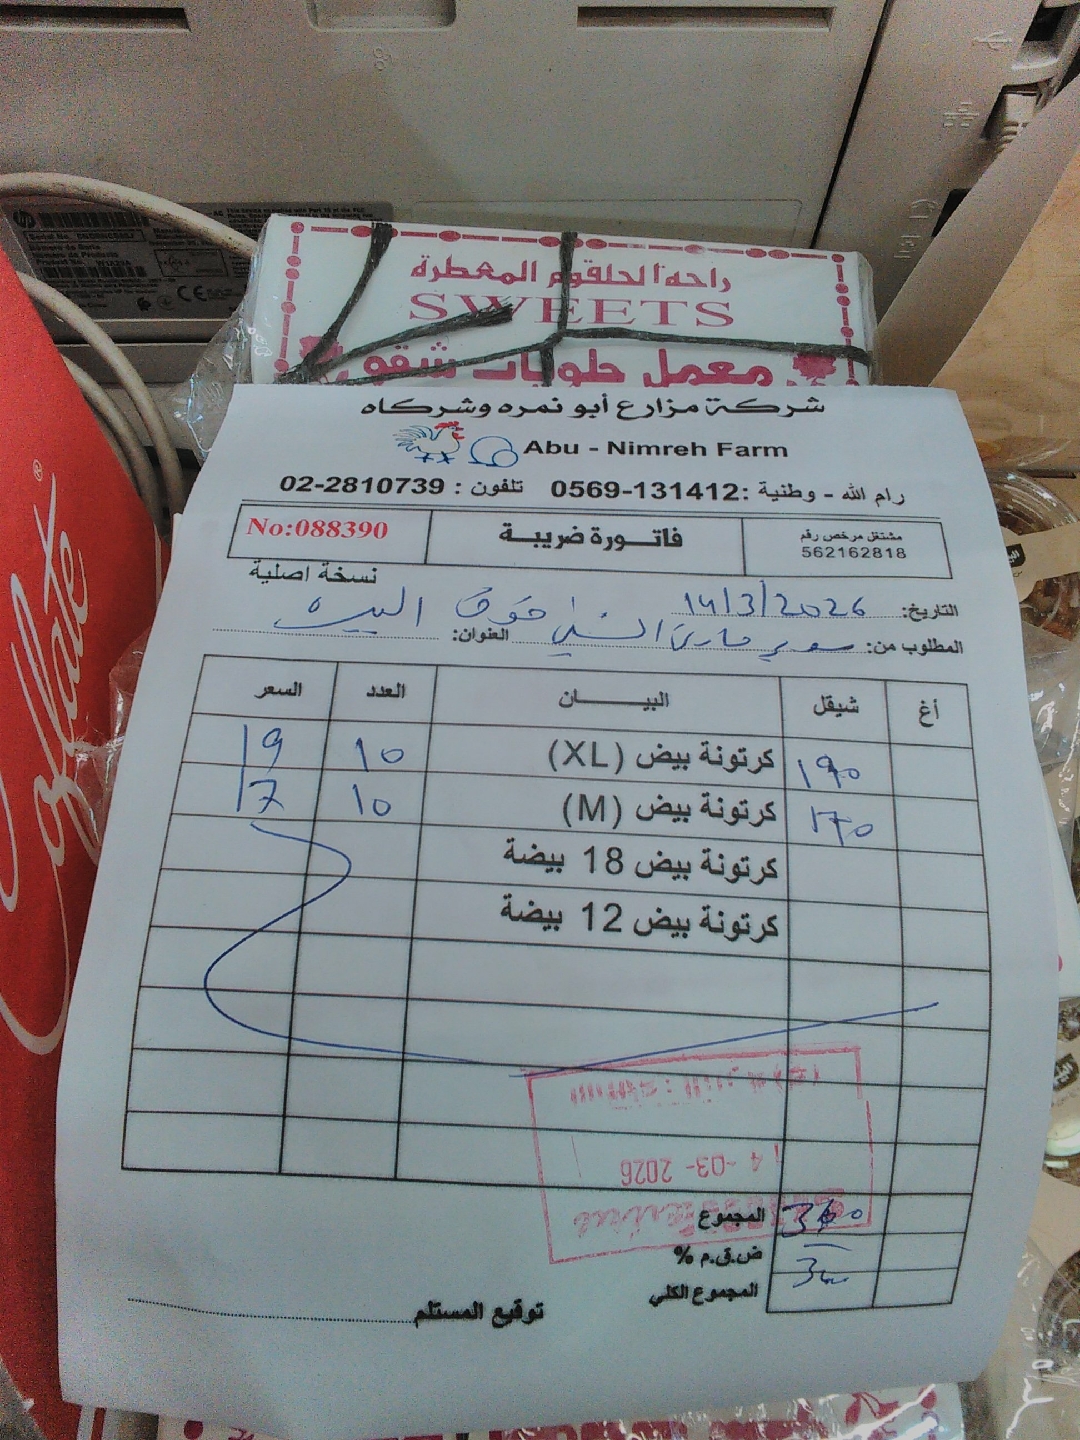 راحة الحلقوم المعطرة
SWEETS
معمل حلويات شقو
شركة مزارع أبو نمره وشركاه
Abu - Nimreh Farm
رام الله - وطنية :0569-131412 تلفون : 02-2810739
مشتغل مرخص رقم
562162818
فاتورة ضريبة
No:088390
نسخة اصلية
التاريخ: 14/3/2026
المطلوب من: سوبر ماركت السني فوق العنوان: البيره
أغ شيقل البيان العدد السعر
190 كرتونة بيض (XL) 10 19
170 كرتونة بيض (M) 10 17
كرتونة بيض 18 بيضة
كرتونة بيض 12 بيضة
14-03-2026
المجموع 360
ض.ق.م %
المجموع الكلي
توقيع المستلم